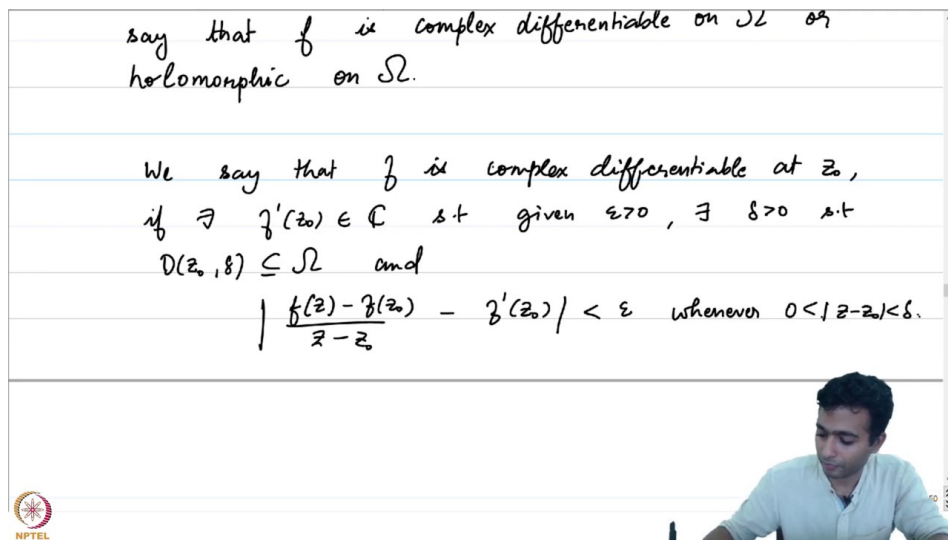 say that f is complex differentiable on Ω or
holomorphic on Ω.
We say that f is complex differentiable at z₀,
if ∃ f'(z₀) ∈ ℂ s.t given ε>0, ∃ δ>0 s.t
D(z₀, δ) ⊆ Ω and
| f(z) - f(z₀) / z - z₀ - f'(z₀) | < ε whenever 0<|z-z₀|<δ.
NPTEL